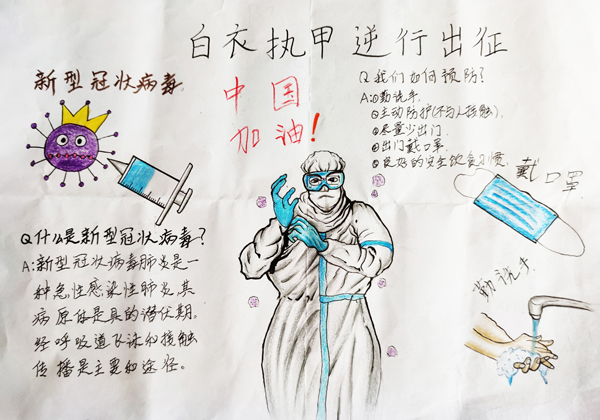 白衣执甲逆行出征
新型冠状病毒
中国
加油!
Q 我们如何预防?
A:①勤洗手.
②主动防护(不与人接触).
③尽量少出门.
④出门戴口罩
⑤良好的安全饮食习惯.
戴口罩
Q什么是新型冠状病毒?
A:新型冠状病毒肺炎是一
种急性感染性肺炎其
病原体是具的潜伏期.
经呼吸道飞沫和接触
传播是主要的途径。
勤洗手.